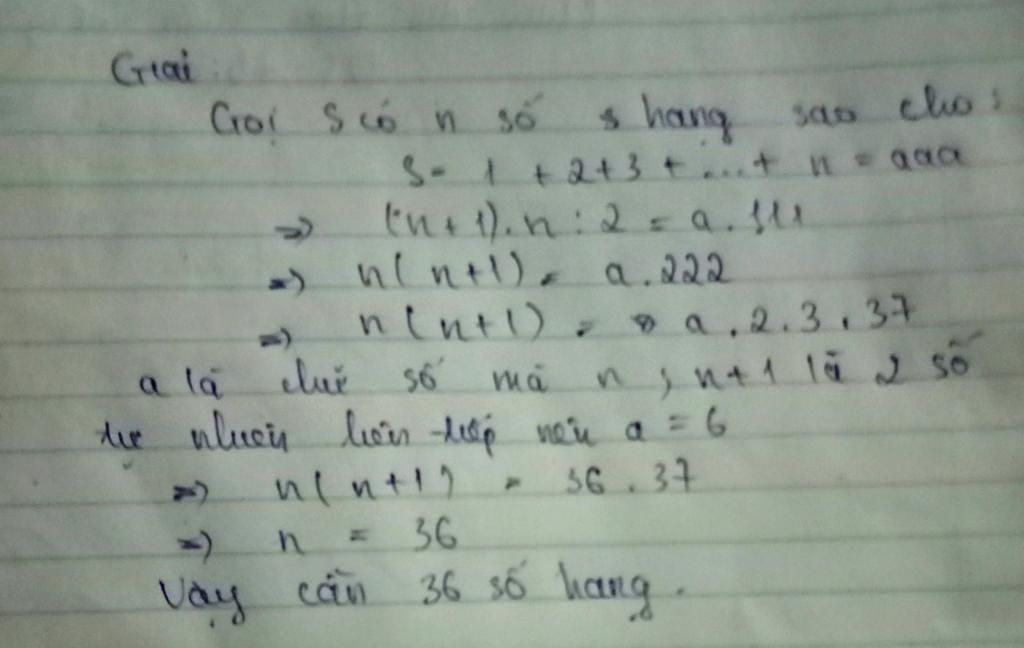 Giải
Gọi S có n số hạng sao cho:
S = 1 + 2 + 3 + ... + n = aaa
=> (n + 1) . n : 2 = a . 111
=> n ( n + 1 ) = a . 222
=> n ( n + 1 ) = a . 2 . 3 . 37
a là chữ số mà n ; n + 1 là 2 số
tự nhiên liên tiếp nên a = 6
=> n ( n + 1 ) = 36 . 37
=> n = 36
Vậy cần 36 số hạng .